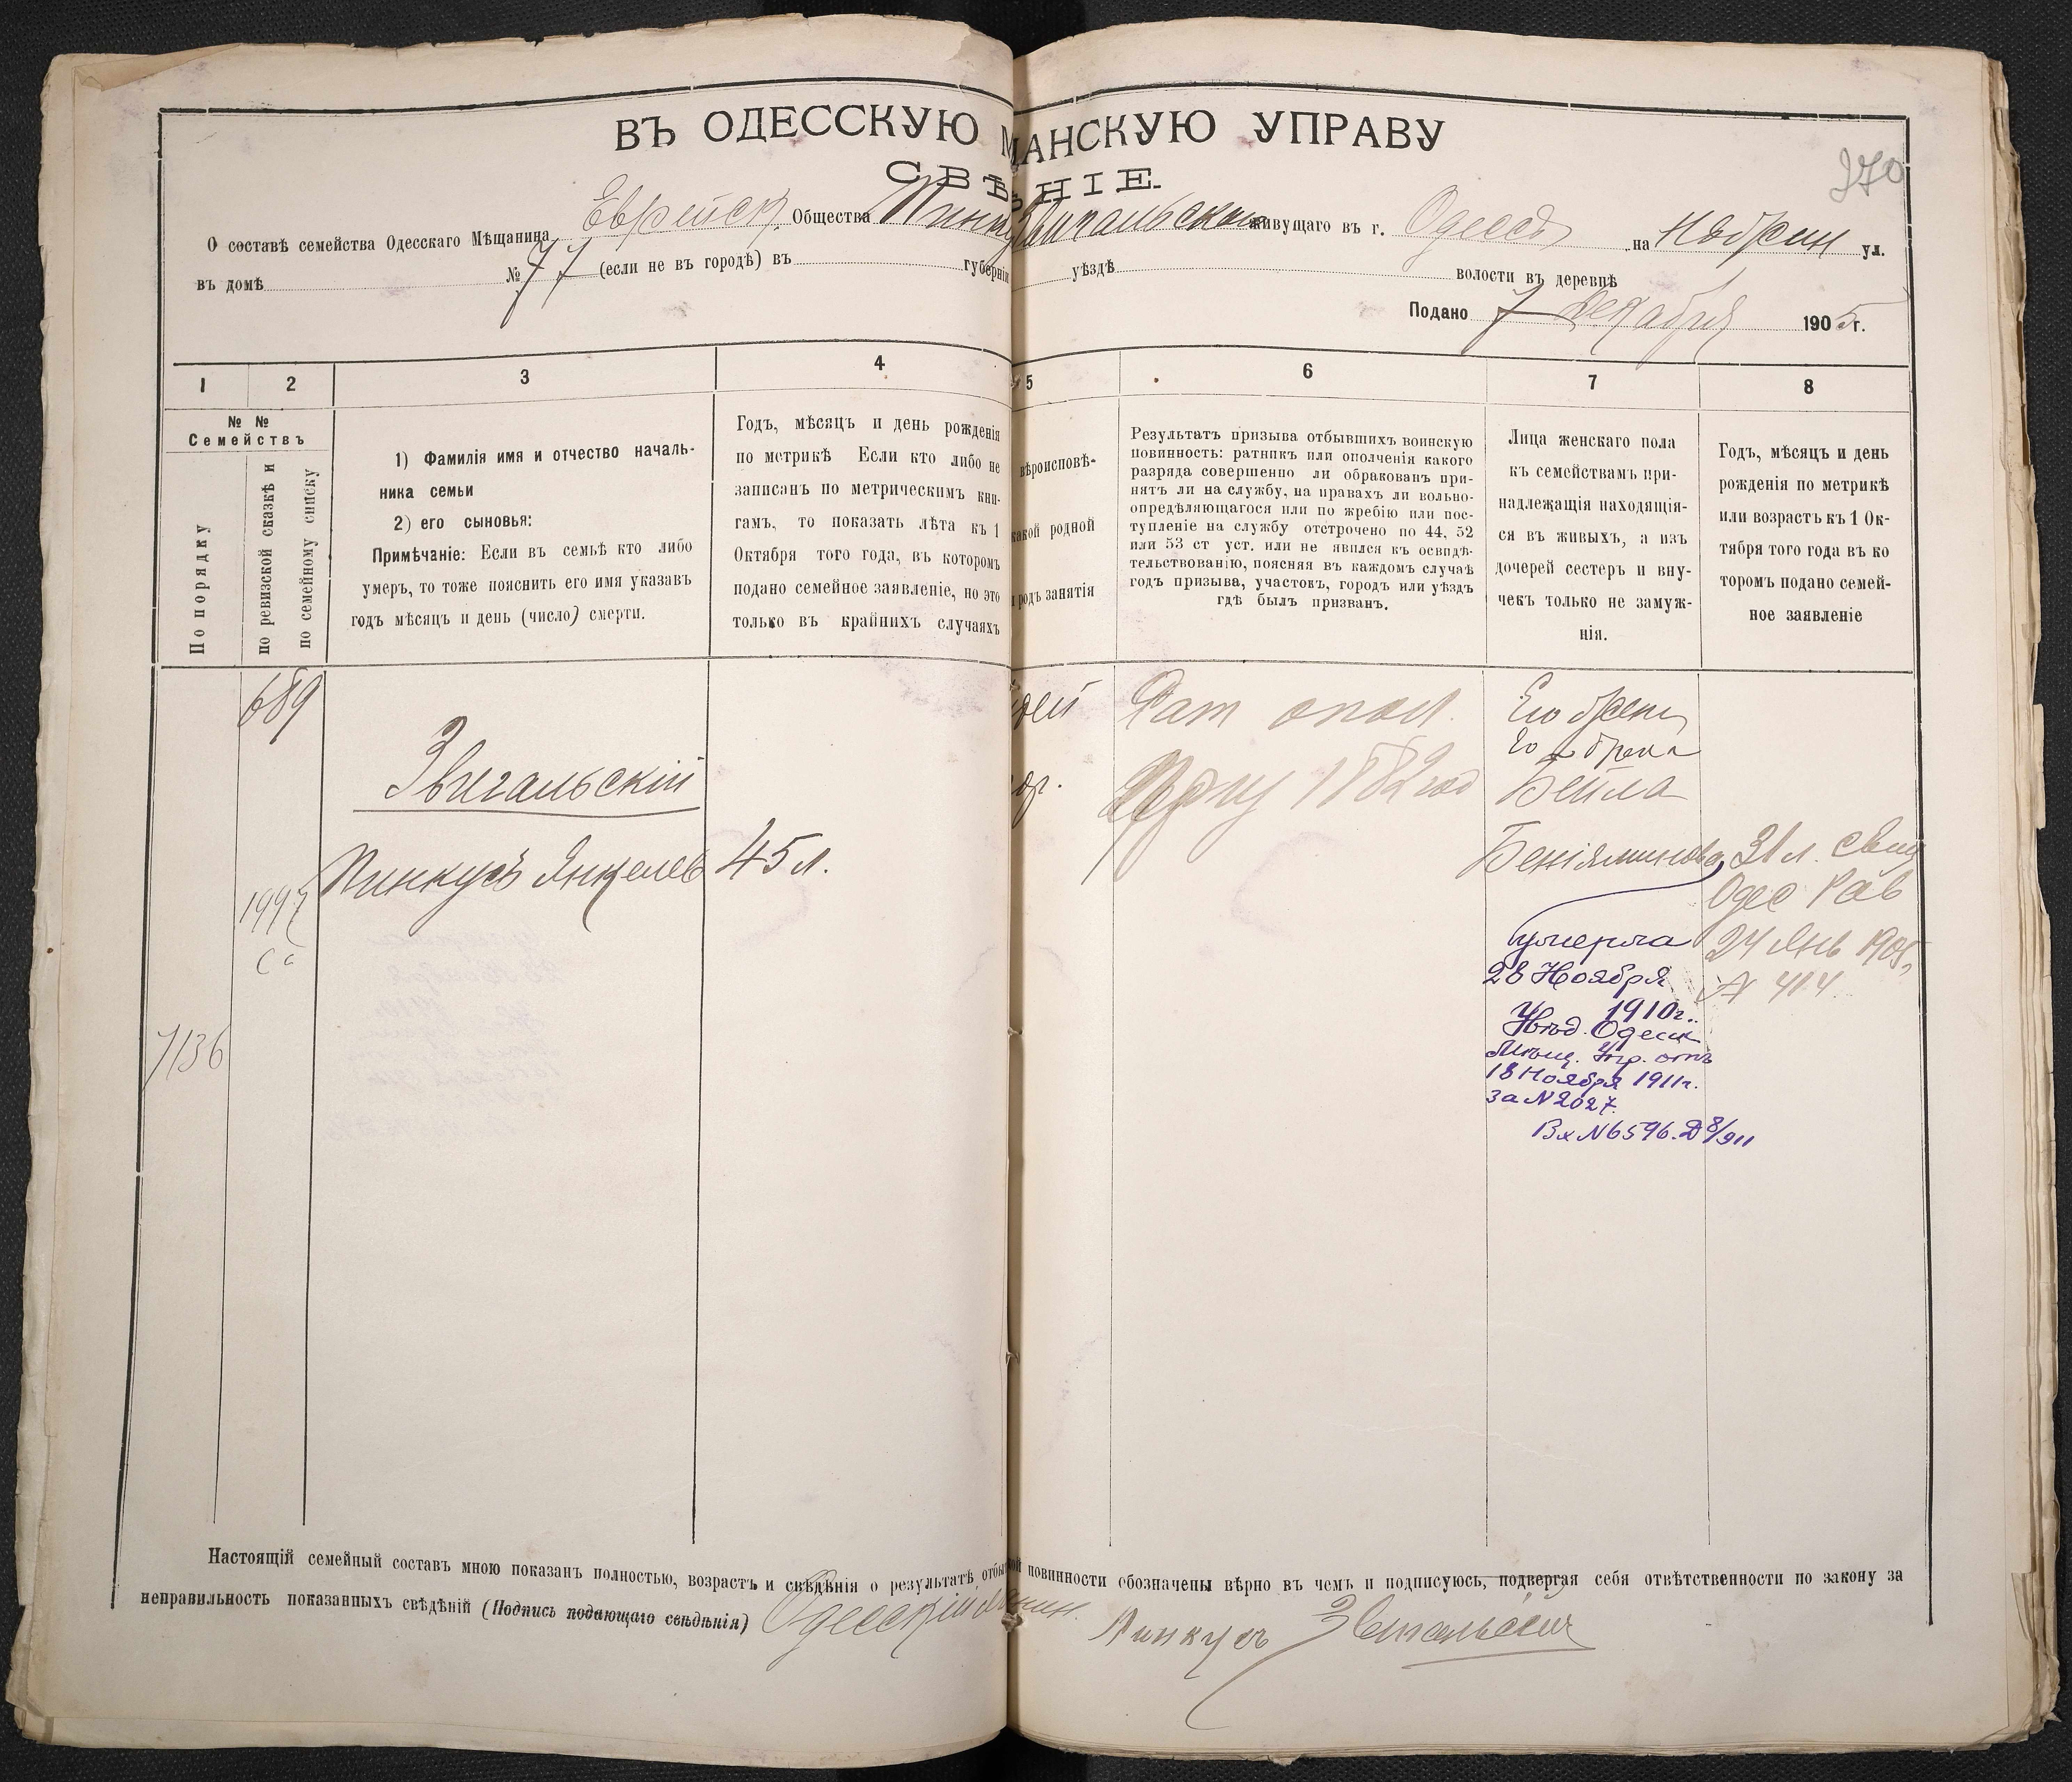 ВЪ ОДЕССКУЮ М ЩАНСКУЮ УПРАВУ
СВѢ НІЕ.
370
О составѣ семейства Одесскаго Мѣщанина Еврейск. Общества Пинку Звигальскаго живущаго въ г. Одессѣ на ул.
въ домѣ № 77 (если не въ городѣ) въ губерніи уѣздѣ волости въ деревнѣ
Подано 7 Декабря 1905 г.
1 2 3 4 5 6 7 8
№ №
Семействъ
По порядку
по ревизской сказкѣ и
по семейному списку
1) Фамилія имя и отчество началь-
ника семьи
2) его сыновья:
Примѣчаніе: Если въ семьѣ кто либо
умеръ, то тоже пояснить его имя указавъ
годъ мѣсяцъ и день (число) смерти.
Годъ, мѣсяцъ и день рожденія
по метрикѣ Если кто либо не
записанъ по метрическимъ кни-
гамъ, то показать лѣта къ 1
Октября того года, въ которомъ
подано семейное заявленіе, но это
только въ крайнихъ случаяхъ
вѣроисповѣ-
какой родной
и родъ занятія
Результатъ призыва отбывшихъ воинскую
повинность: ратникъ или ополченія какого
разряда совершенно ли обракованъ при-
нятъ ли на службу, на правахъ ли вольно-
опредѣляющагося или по жребію или пос-
тупленіе на службу отсрочено по 44, 52
или 53 ст уст. или не явился къ освидѣ-
тельствованію, поясняя въ каждомъ случаѣ
годъ призыва, участокъ, городъ или уѣздъ
гдѣ былъ призванъ.
Лица женскаго пола
къ семействамъ при-
надлежащія находящія-
ся въ живыхъ, а изъ
дочерей сестеръ и вну-
чекъ только не замуж-
нія.
Годъ, мѣсяцъ и день
рожденія по метрикѣ
или возрастъ къ 1 Ок-
тября того года въ ко
торомъ подано семей-
ное заявленіе
689
Звигальскій
Пинкусъ Янкелев 45 л.
1997
7136
дей
Рат опол.
1882 год
Его жена
2о брака
Бейла
Беніяминова, 31 л. свид
Одес Рав
24 Янв 1905,
№ 414
умерла
28 Ноября
1910г.
Увѣд. Одесск
Мѣщ. Упр. отъ
18 Ноября 1911г.
за N 2027.
Вх N 6596. Д 8/911
Настоящій семейный составъ мною показанъ полностью, возрастъ и свѣдѣнія о результатѣ отбы ой повинности обозначены вѣрно въ чемъ и подписуюсь, подвергая себя отвѣтственности по закону за
неправильность показанныхъ свѣдѣній (Подпись подающаго свѣдѣнія) Одесскій Пинкусъ Звигальскій